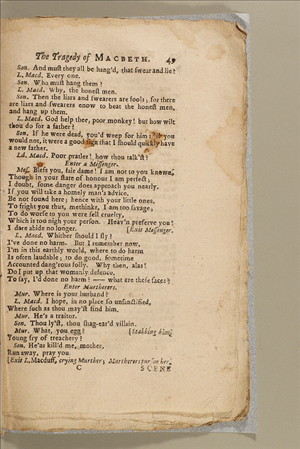 The Tragedy of MACBETH. 49
Son. And muſt they all be hang'd, that ſwear and lie?
L. Macd. Every one.
Son. Who muſt hang them?
L. Macd. Why, the honeſt men.
Son. Then the liars and ſwearers are fools; for there
are liars and ſwearers enow to beat the honeſt men,
and hang up them.
L. Macd. God help thee, poor monkey! but how wilt
thou do for a father?
Son. If he were dead, you'd weep for him: if you
would not, it were a good ſign that I ſhould quickly have
a new father.
Ld. Macd. Poor pratler! how thou talk'ſt!
Enter a Meſſenger.
Meſ. Bleſs you, fair dame! I am not to you known,
Though in your ſtate of honour I am perfect;
I doubt, ſome danger does approach you nearly.
If you will take a homely man's advice,
Be not found here; hence with your little ones.
To fright you thus, methinks, I am too ſavage;
To do worſe to you were fell cruelty,
Which is too nigh your perſon. Heav'n preſerve you!
I dare abide no longer. [Exit Meſſenger.
L. Macd. Whither ſhould I fly?
I've done no harm. But I remember now,
I'm in this earthly world, where to do harm
Is often laudable; to do good, ſometime
Accounted dang'rous folly. Why then, alas!
Do I put up that womanly defence,
To ſay, I'd done no harm? —— what are theſe faces?
Enter Murtherers.
Mur. Where is your husband?
L. Macd. I hope, in no place ſo unſanctified,
Where ſuch as thou may'ſt find him.
Mur. He's a traitor.
Son. Thou ly'ſt, thou ſhag-ear'd villain.
Mur. What, you egg! [Stabbing him.
Young fry of treachery?
Son. He'as kill'd me, mother,
Run away, pray you.
[Exit L. Macduff, crying Murther; Murtherers purſue her.
C SCENE